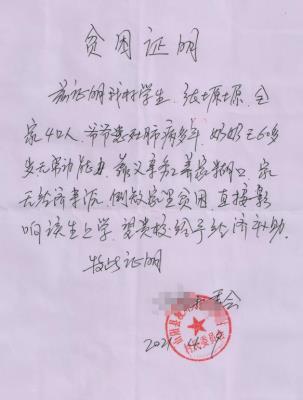 贫困证明
兹证明我村学生、张塬塬、全
家4口人、爷爷患肝肺病多年、奶奶已60多
岁无劳动能力、靠父亲务工养家糊口、家
无经济来源、倒致家里贫困、直接影
响该生上学、望贵校给予经济补助
特此证明
委会
2021.4.9
村民委员会